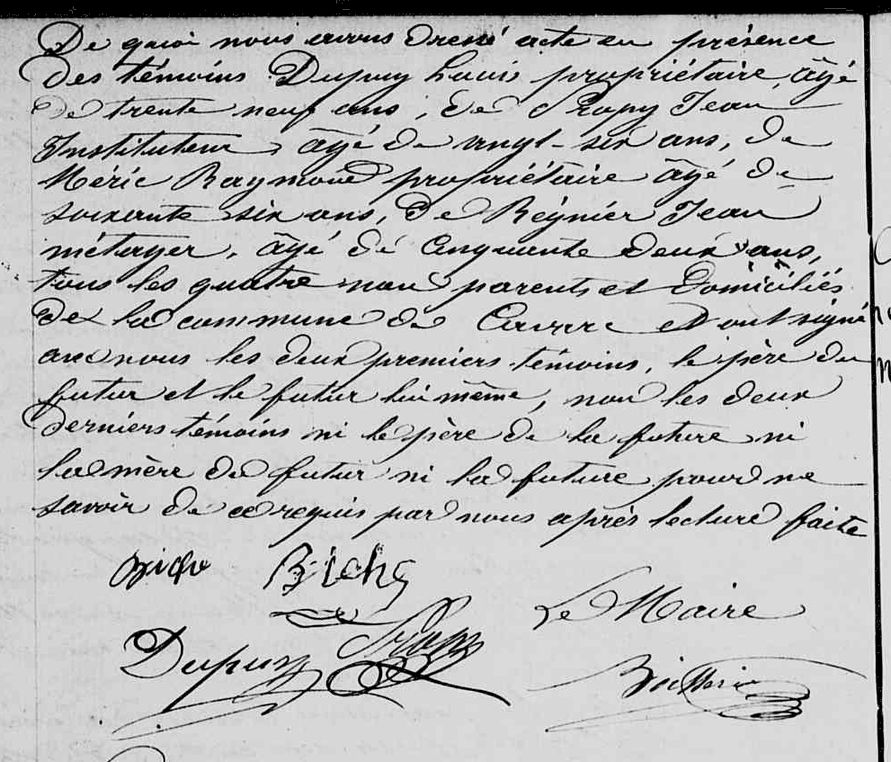 De quoi nous avons dressé acte en présence
des témoins Dupuy Louis propriétaire, âgé
de trente neuf ans, de Jean
Instituteur, âgé de vingt-six ans, de
Méric Raymond propriétaire âgé de
soixante six ans, de Réynier Jean
métayer, âgé de cinquante deux ans,
tous les quatre non parents et domiciliés
de la commune de et ont signé
avec nous les deux premiers témoins, le père du
futur et le futur lui même, non les deux
derniers témoins ni le père de la future ni
la mère du futur ni la future pour ne
savoir de ce requis par nous après lecture faite
Le Maire
Dupuy